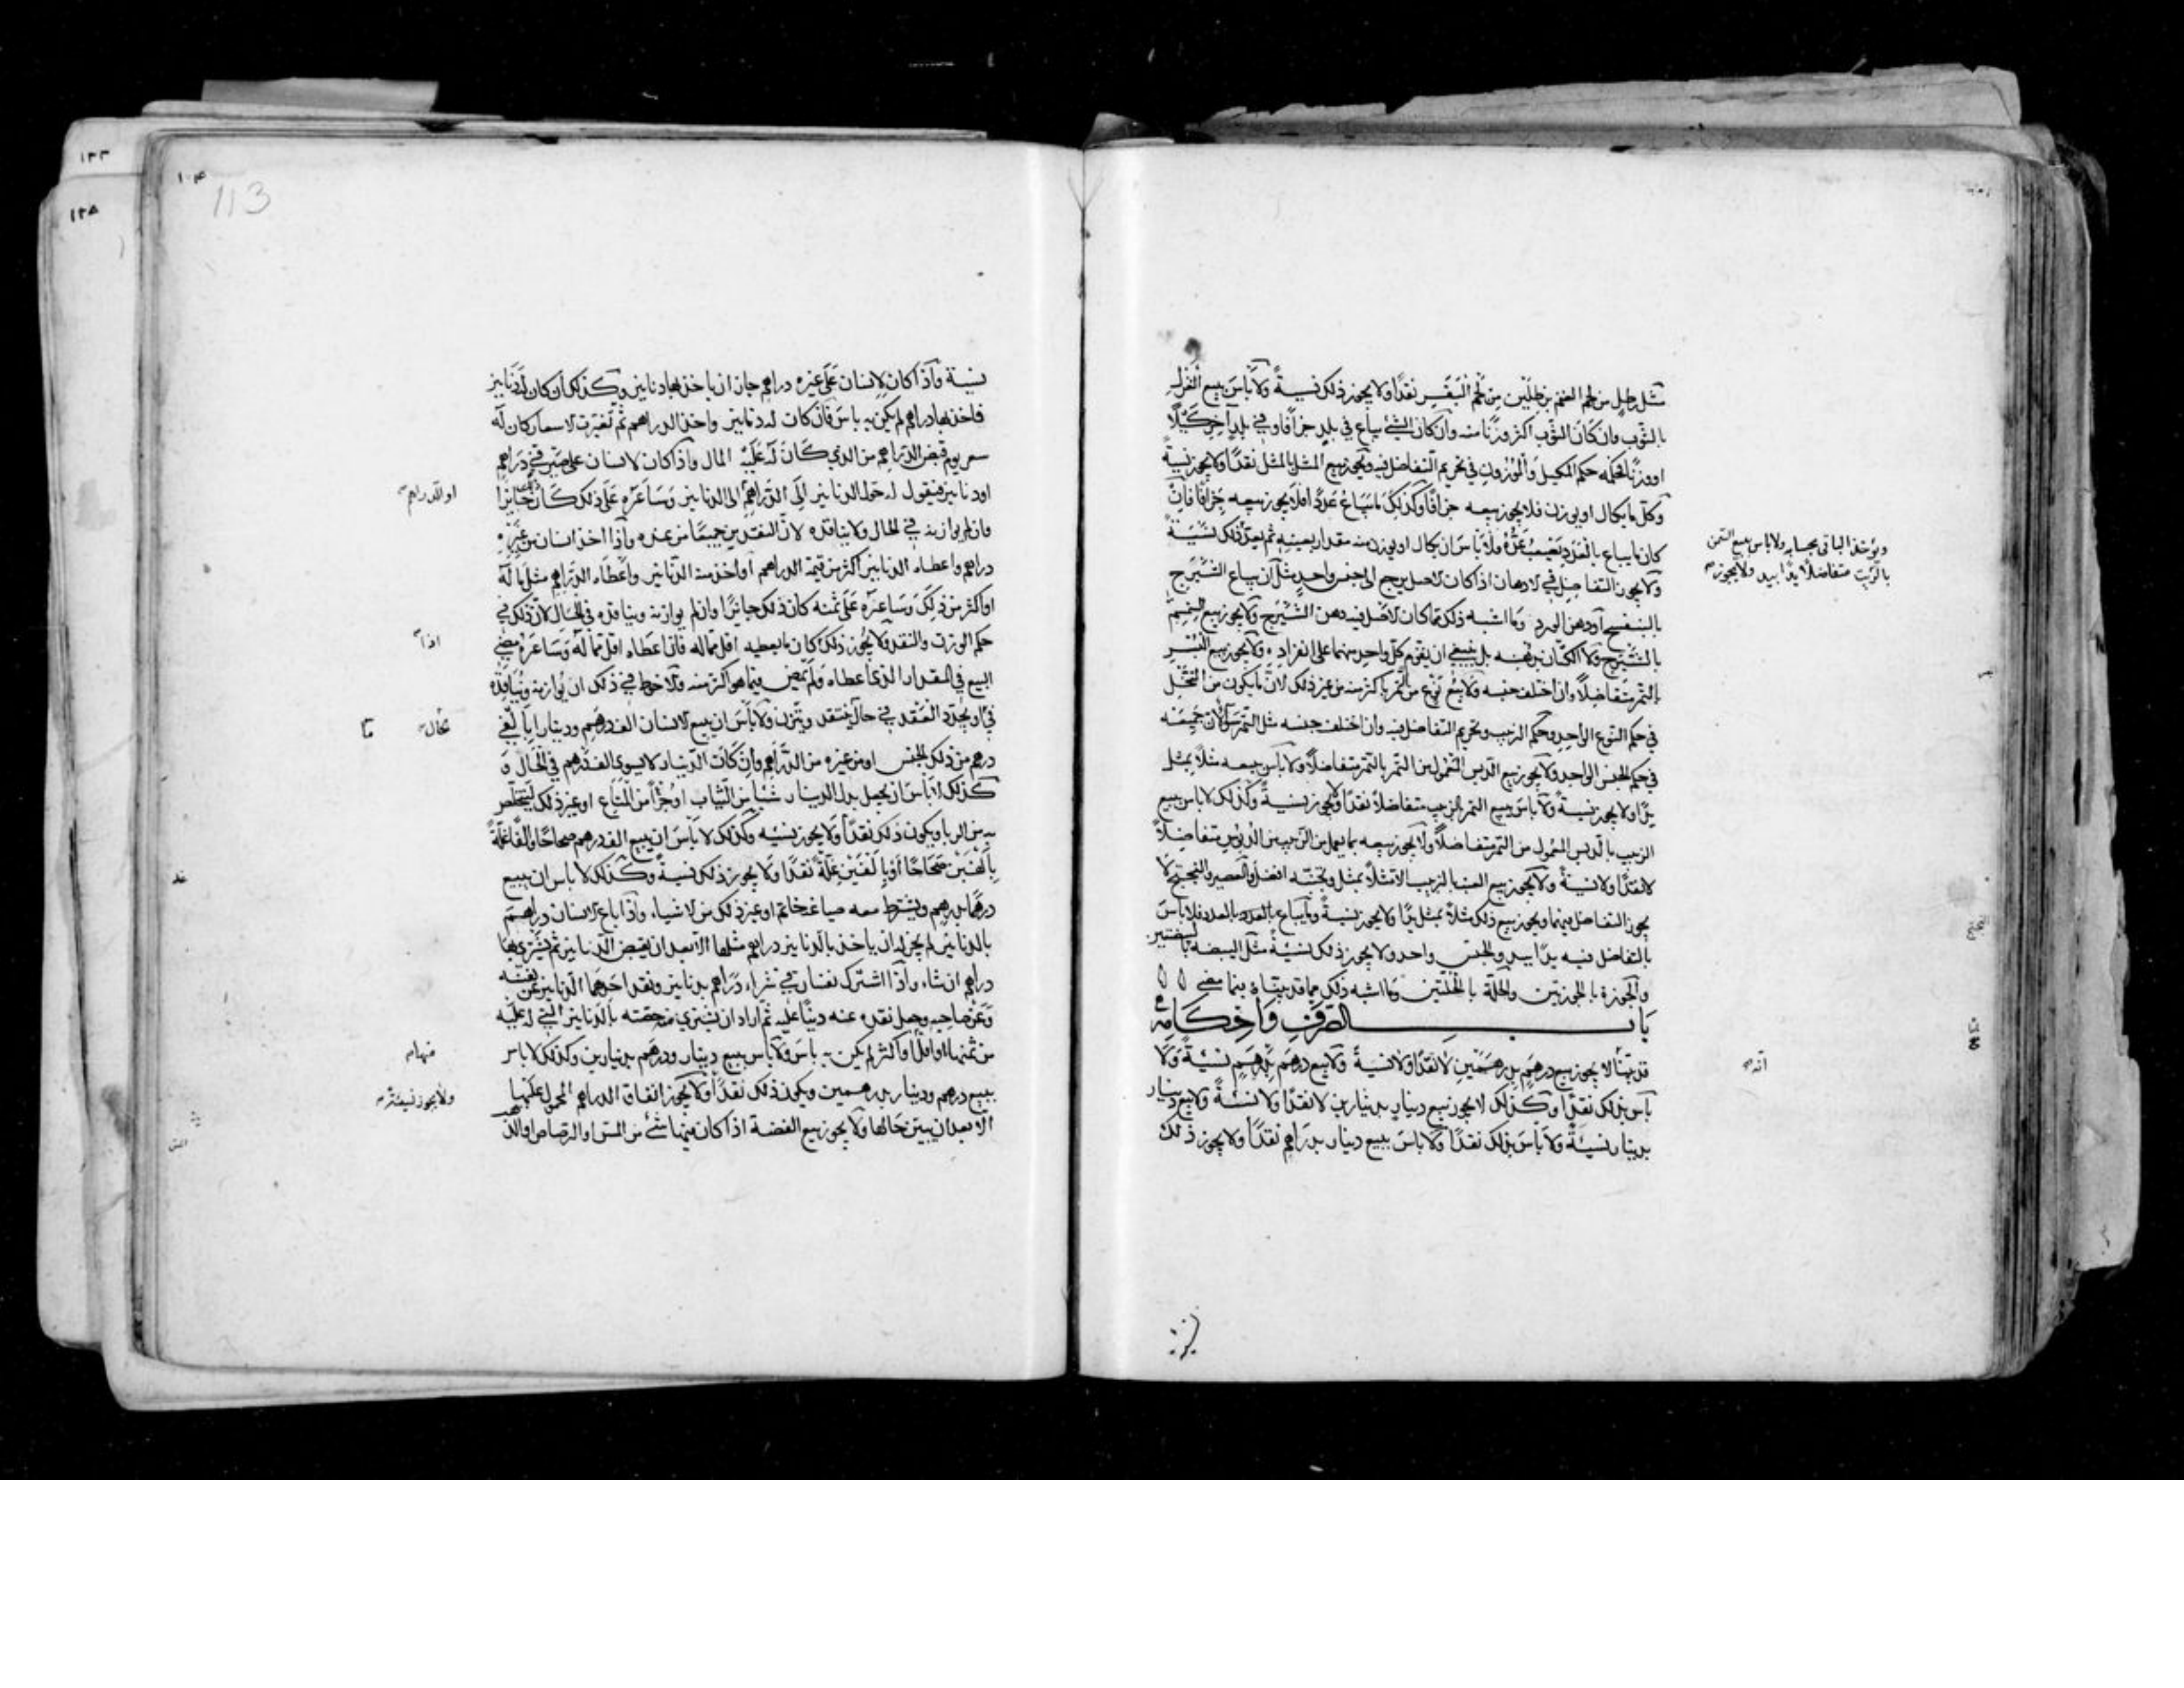 مثل رطل من لحم الغنم برطلين من لحم البقر نقدًا ولا يجوز ذلك نسيةً ولا بأس ببيع الغزل
بالثوب وان كان الثوب اكثر وزنًا منه وان كان الشئ يباع في بلدٍ جزافًا وفي بلدٍ آخر كيلًا
او وزنًا فحكمه حكم المكيل والموزون في تحريم التفاضل فيه ويجوز بيع المثل بالمثل نقدًا ولا يجوز نسيةً
وكل ما يكال او يوزن فلا يجوز بيعه جزافًا وكذلك ما يباع عددًا فلا يجوز بيعه جزافًا فان
كان ما يباع بالعدد يصعب عدّه فلا بأس ان يكال او يوزن منه مقدار بعينه ثم يعدّ ذلك
ويؤخذ الباقي بحسابه ولا باس ببيع السمن
بالزيت متفاضلًا يدًا بيد ولا يجوز
نسيةً
ولا يجوز التفاضل في الادهان اذا كان الاصل يرجع الى جنس واحدٍ مثل ان يباع الشيرج
بالبنفسج او دهن الورد وما اشبه ذلك مما كان الاصل فيه دهن الشيرج ولا يجوز بيع السمسم
بالشيرج ولا الكتان بدهنه بل ينبغي ان يقوم كل واحدٍ منهما على انفراده ولا يجوز بيع البسر
بالتمر متفاضلًا وان اختلف جنسه ولا بيع نوع من تمر باكثر منه من غير ذلك لان ما يكون من النخل
في حكم النوع الواحد وحكم الزبيب وتحريم التفاضل فيه وان اختلف جنسه مثل التمر سواء لان جميعه
في حكم الجنس الواحد ولا يجوز بيع الدبس المعمول من التمر بالتمر متفاضلًا ولا بأس ببيعه مثلًا بمثل
يدًا ولا يجوز نسيةً ولا بأس ببيع التمر بالزبيب متفاضلًا نقدًا ولا يجوز نسيةً وكذلك لا باس ببيع
الزبيب بالدبس المعمول من التمر متفاضلًا ولا يجوز بيعه بما يعمل من الزبيب من الدبوس متفاضلًا
لا نقدًا ولا نسيةً ولا يجوز بيع العنب بالزبيب الا مثلًا بمثل وتجنبه افضل والعصير والبختج لا
يجوز التفاضل بينهما ويجوز بيع ذلك مثلًا بمثل يدًا ولا يجوز نسيةً وما يباع بالعدد فلا باس
بالتفاضل فيه يدًا بيد والجنس واحد ولا يجوز ذلك نسيةً مثل البيضة بالبيضتين
والجوزة بالجوزتين والحلة بالحلتين وما اشبه ذلك مما قد بيناه فيما مضى
باب الصرف واحكامه
قد بيّنا
انه
لا يجوز بيع درهمٍ بدرهمين لا نقدًا ولا نسيةً ولا بيع درهم بدرهم نسيةً ولا
بأس بذلك نقدًا وكذلك لا يجوز بيع دينارٍ بدينارين لا نقدًا ولا نسيةً ولا بيع دينار
بدينار نسيةً ولا بأس بذلك نقدًا ولا باس ببيع دينار بدراهم نقدًا ولا يجوز ذلك
نسية
١٠٤
113
١٢٣
١٢٥
نسية واذا كان لانسان على غيره دراهم جاز ان ياخذ بها دنانير وكذلك ان كان له دنانير
فاخذ بها دراهم لم يكن به باس فان كان له دنانير واخذ الدراهم ثم تغيرت الاسعار كان له
سعر يوم قبض الدراهم من الذي كان له عليه المال واذا كان لانسان على صيرفيٍّ دراهم
او دنانير فيقول له حوّل الدنانير الى الدراهم
او الدراهم
الى الدنانير وساعره على ذلك كان ذلك جائزًا
وان لم يوازنه في الحال ولا يناقده لان النقدين جميعًا من عنده واذا اخذ انسان من غيره
دراهم واعطاه الدنانير اكثر من قيمة الدراهم او اخذ منه الدنانير واعطاه الدراهم مثل ما له
او اكثر من ذلك وساعره على ثمنه كان ذلك جائزًا وان لم يوازنه ويناقده في الحال لان ذلك في
حكم الوزن والنقد ولا يجوز ذلك
اذا
كان ما يعطيه اقل مما له فان اعطاه اقل مما له وساعره مضى
البيع في المقدار الذي اعطاه ولم يمض فيما هو اكثر منه والاحوط في ذلك ان يوازنه ويناقده
في
الحال
او يجدد العقد في حال ينتقد ويتزن ولا باس ان يبيع الانسان الف درهم ودينارا بالفي
درهم من ذلك الجنس او من غيره من الدراهم وان كان الدينار لا يسوى الف درهم في الحال و
كذلك لا باس ان يجعل بدل الدينار شيئا من الثياب او جزأً من المتاع او غير ذلك ليتخلص
به من الربا ويكون ذلك نقدًا ولا يجوز نسيه وكذلك لا باس ان يبيع الف درهم صحاحًا والفًا غلّةً
بالفين صحاحًا او بالفين غلّة نقدًا ولا يجوز ذلك نسيةً وكذلك لا باس ان يبيع
درهمًا بدرهم ويشترط معه صياغة خاتم او غير ذلك من الاشياء واذا باع الانسان دراهم
بالدنانير لم يجز له ان ياخذ بالدنانير دراهم مثلها الا بعد ان يقبض الدنانير ثم يشتري بها
دراهم ان شاء واذا اشترك نفسان في شراء دراهم بدنانير ونقد احدهما الدنانير عن نفسه
وعن صاحبه وجعل نقده عنه دينًا عليه ثم اراد ان يشتري منه حصته بالدنانير التي له عليه
من ثمنها او اقل
منها
او اكثر لم يكن به باس ولا بأس ببيع دينار ودرهم بدينارين وكذلك لا باس
ببيع درهم ودينار بدرهمين ويكون ذلك نقدًا
ولا يجوز نسيئة
ولا يجوز انفاق الدراهم المحمول عليها
الا بعد ان يبين حالها ولا يجوز بيع الفضة اذا كان فيها شئ من المس او الرصاص او الذهب